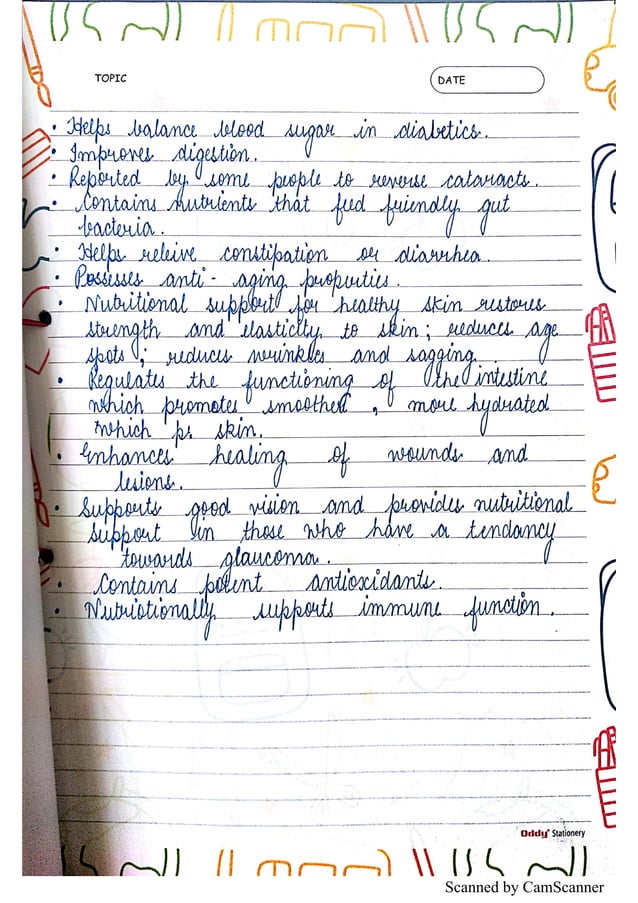 TOPIC
DATE
• Helps balance blood sugar in diabetics.
• Improves digestion.
• Reported by some people to reverse cataracts.
• Contains nutrients that feed friendly gut
bacteria.
• Helps releive constipation or diarrhea.
• Possesses anti-aging properties.
• Nutritional support for healthy skin restores
strength and elasticity to skin; reduces age
spots; reduces wrinkles and sagging.
• Regulates the functioning of the intestine
which promotes smoother, more hydrated
which skin.
• Enhances healing of wounds and
lesions.
• Supports good vision and provides nutritional
support in those who have a tendancy
towards glaucoma.
• Contains potent antioxidants.
• Nutriotionally supports immune function.
Oddy Stationery
Scanned by CamScanner